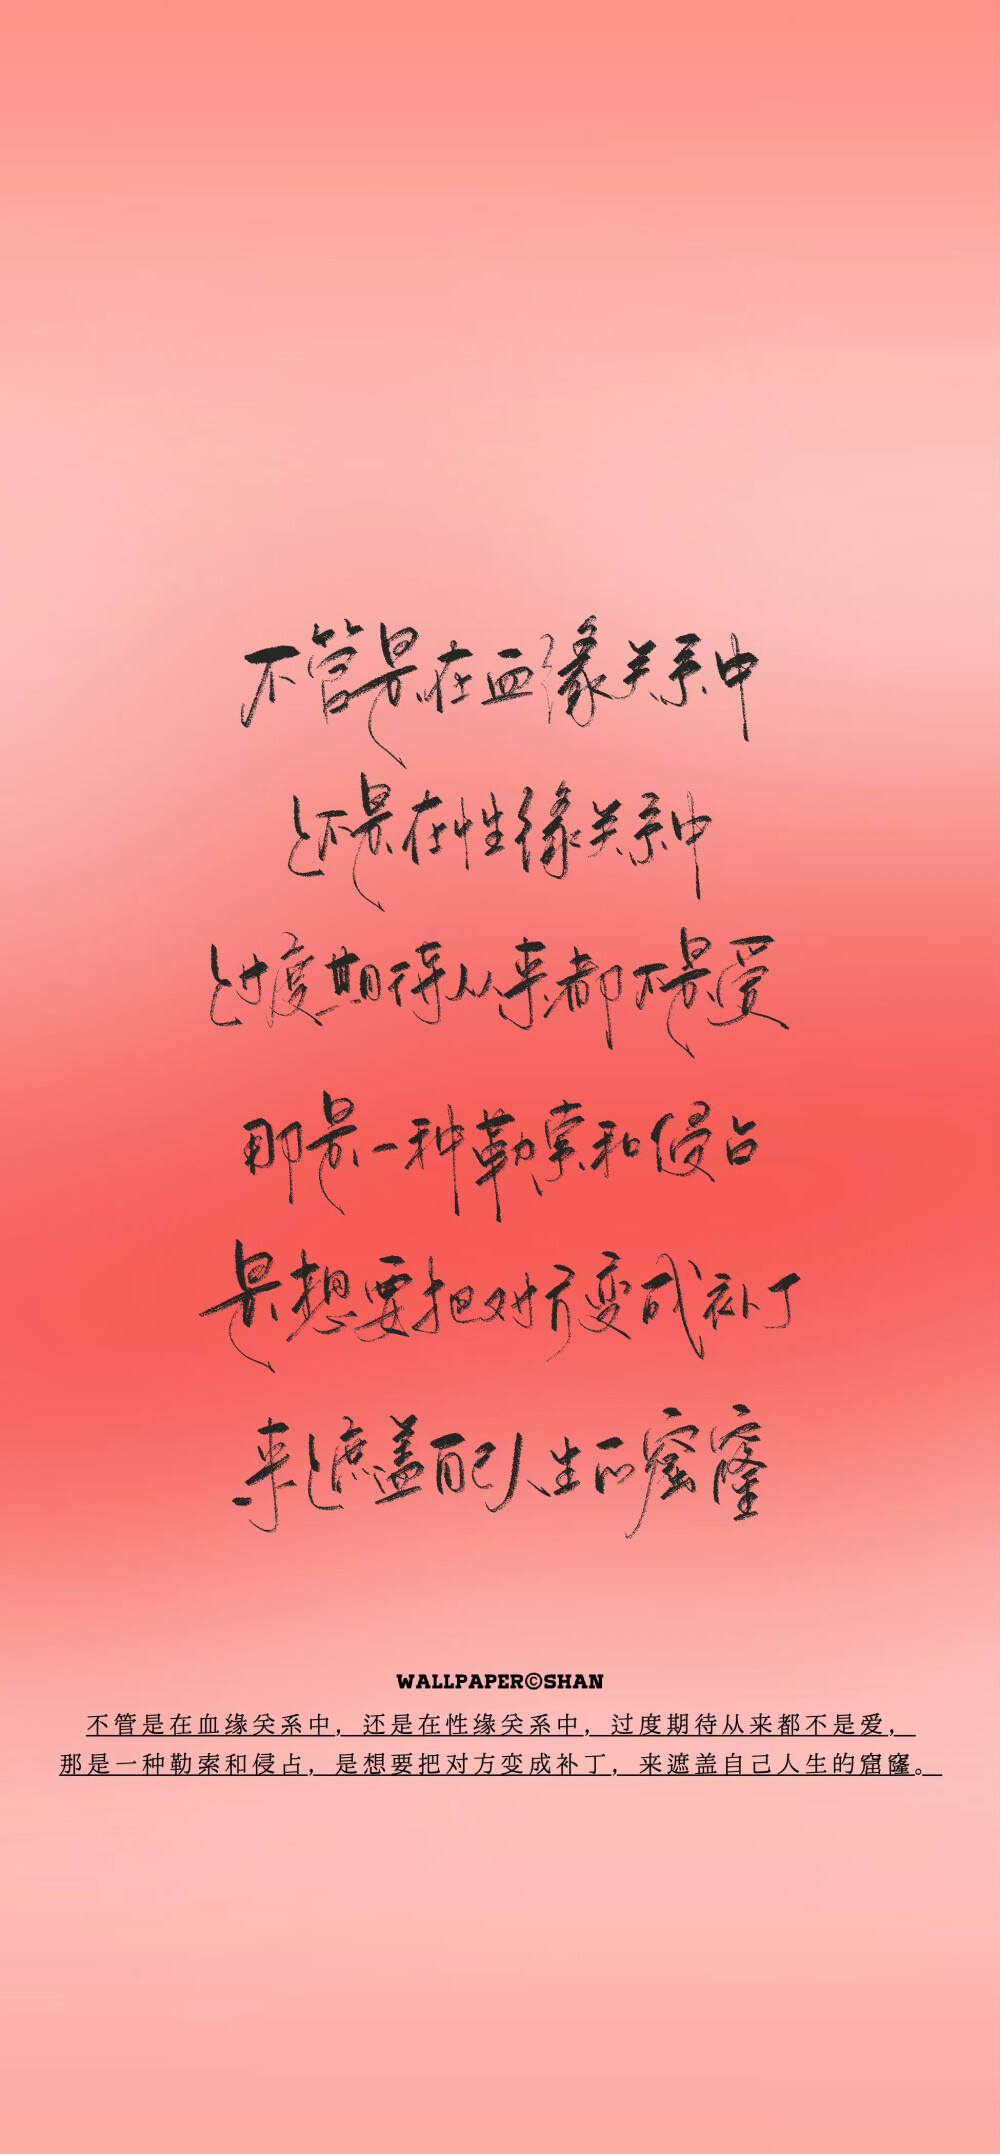 不管是在血缘关系中
还是在性缘关系中
过度期待从来都不是爱
那是一种勒索和侵占
是想要把对方变成补丁
来遮盖自己人生的窟窿
WALLPAPER©SHAN
不管是在血缘关系中，还是在性缘关系中，过度期待从来都不是爱，
那是一种勒索和侵占，是想要把对方变成补丁，来遮盖自己人生的窟窿。